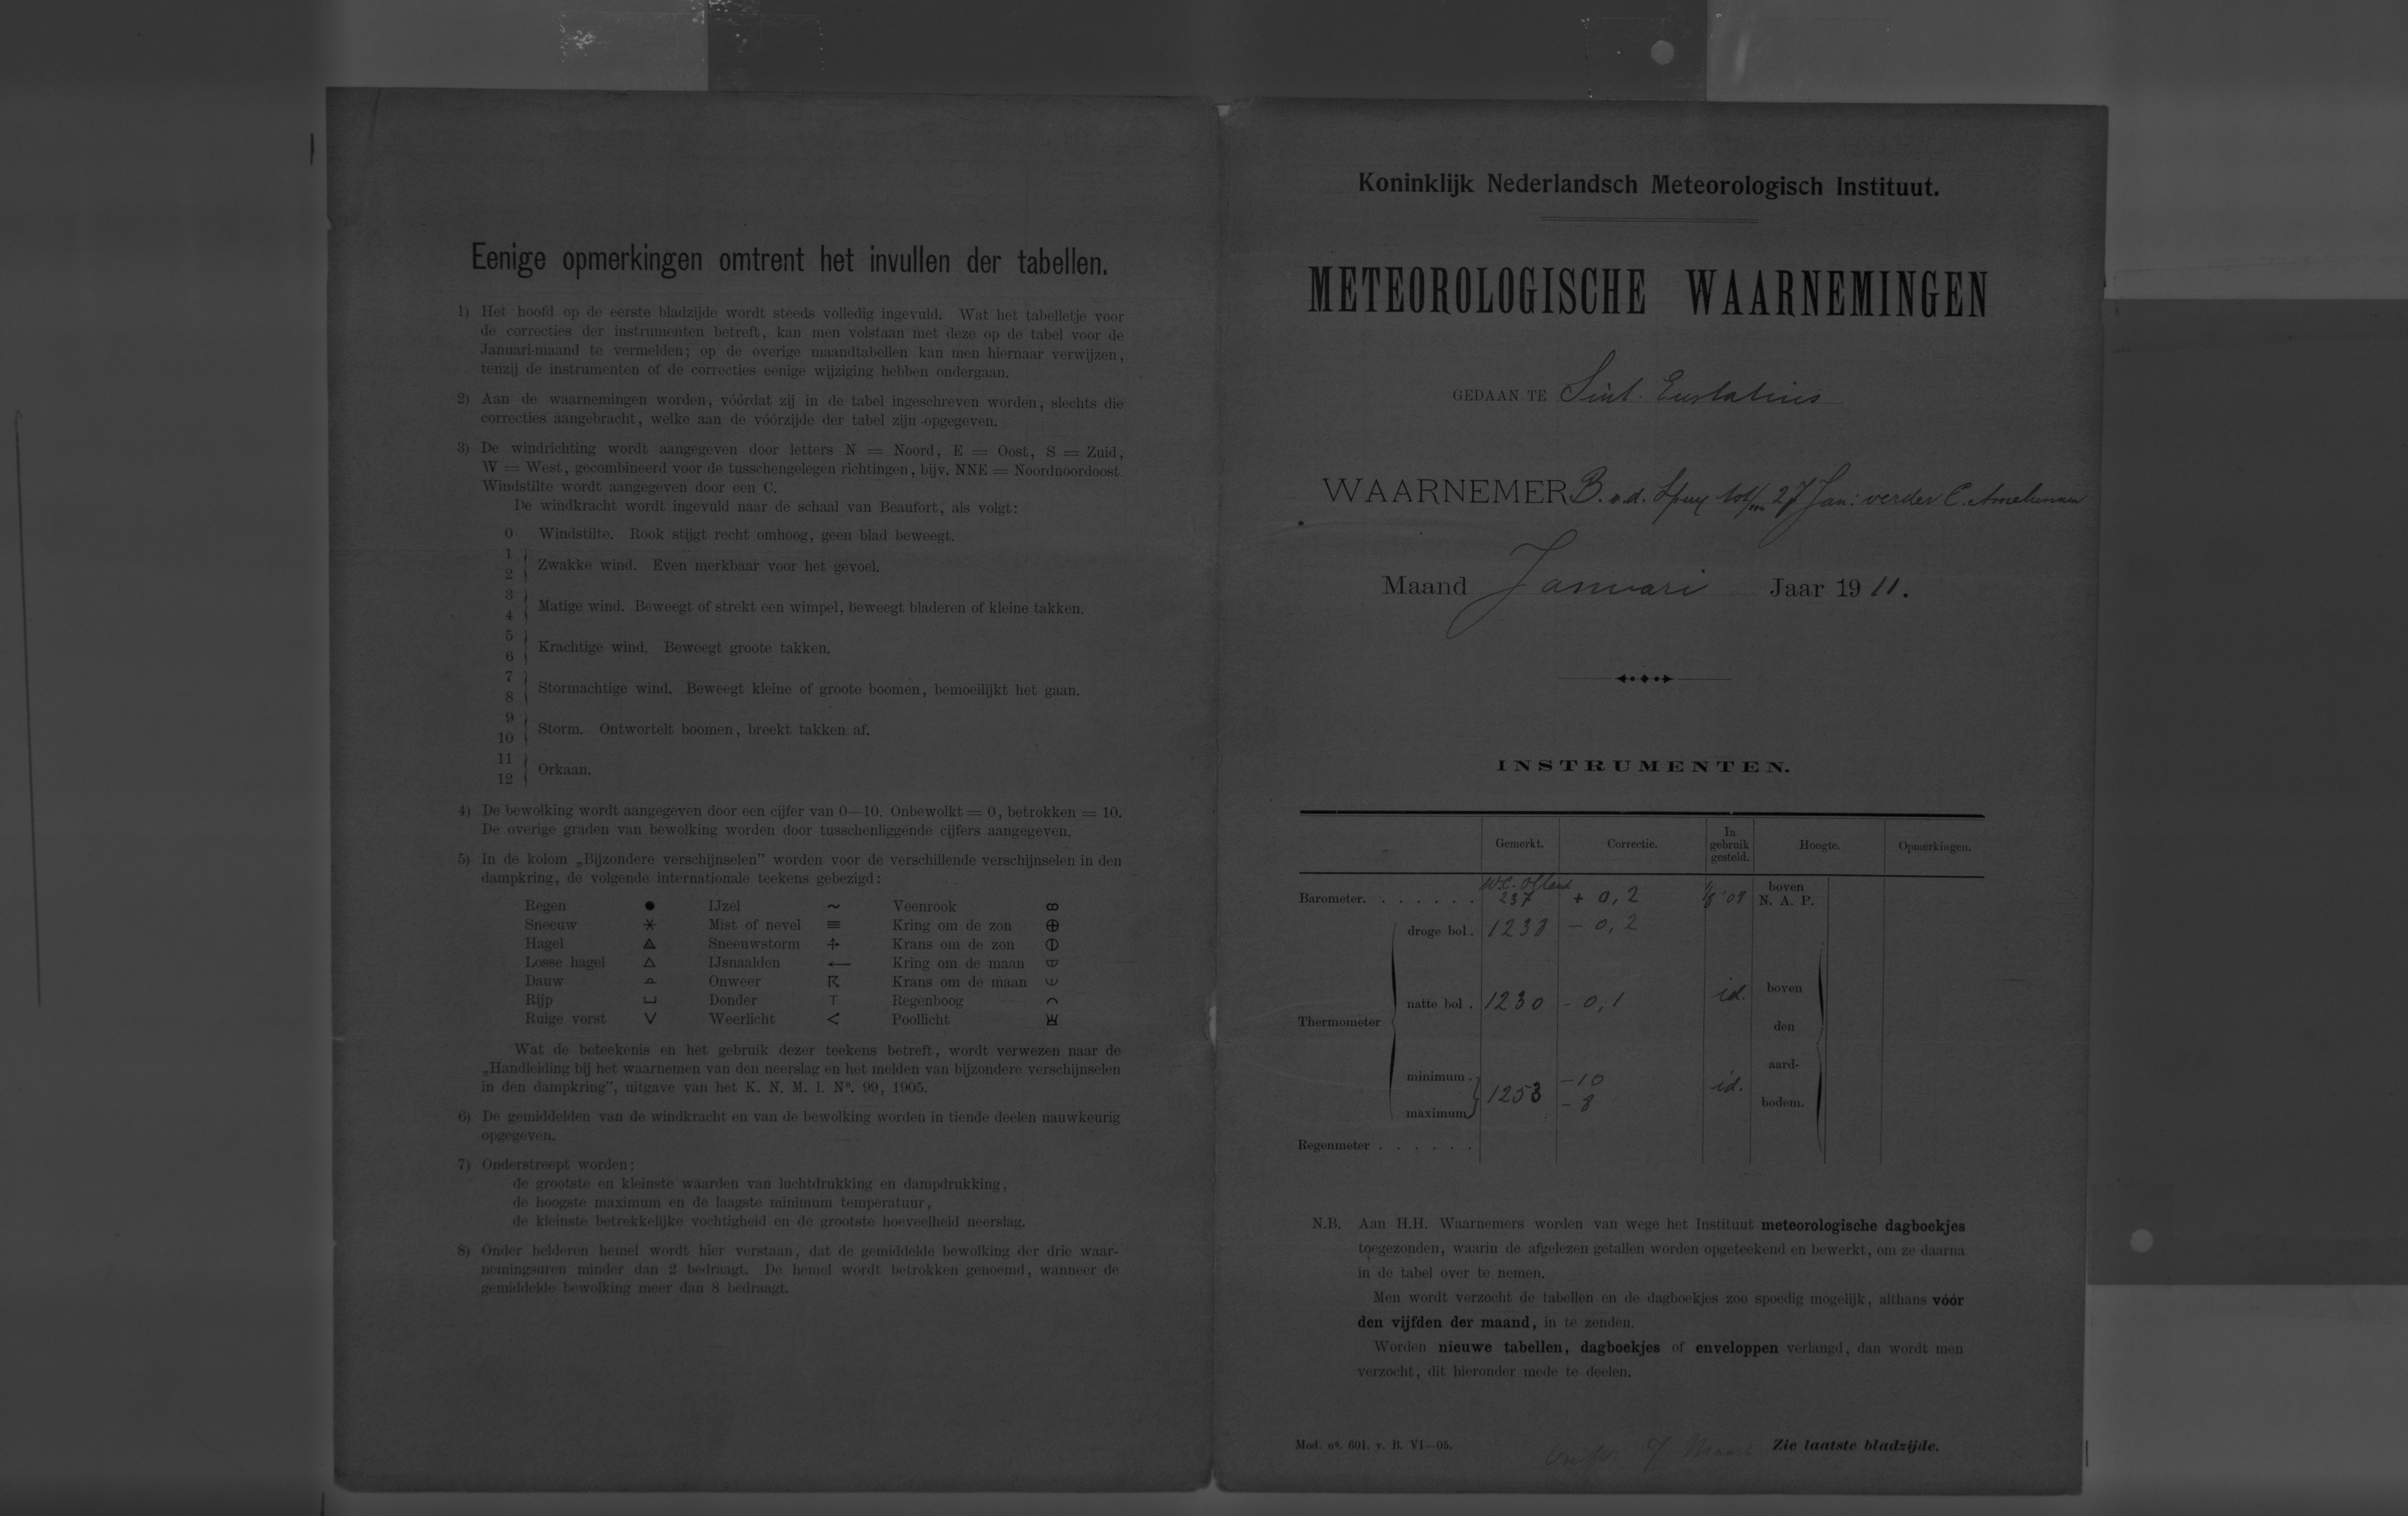 Eenige opmerkingen omtrent het invullen der tabellen.
1) Het hoofd op de eerste bladzijde wordt steeds volledig ingevuld. Wat het tabelletje voor
de correcties der instrumenten betreft, kan men volstaan met deze op de tabel voor de
Januari-maand te vermelden; op de overige maandtabellen kan men hiernaar verwijzen,
tenzij de instrumenten of de correcties eenige wijziging hebben ondergaan.
2) Aan de waarnemingen worden, vóórdat zij in de tabel ingeschreven worden, slechts die
correcties aangebracht, welke aan de vóórzijde der tabel zijn opgegeven.
3) De windrichting wordt aangegeven door letters N = Noord, E = Oost, S = Zuid,
W = West, gecombineerd voor de tusschengelegen richtingen, bijv. NNE = Noordnoordoost.
Windstilte wordt aangegeven door een C.
De windkracht wordt ingevuld naar de schaal van Beaufort, als volgt:
0 Windstilte. Rook stijgt recht omhoog, geen blad beweegt.
1
2 Zwakke wind. Even merkbaar voor het gevoel.
3
4 Matige wind. Beweegt of strekt een wimpel, beweegt bladeren of kleine takken.
5
6 Krachtige wind. Beweegt groote takken.
7
8 Stormachtige wind. Beweegt kleine of groote boomen, bemoeilijkt het gaan.
9
10 Storm. Ontwortelt boomen, breekt takken af.
11
12 Orkaan.
4) De bewolking wordt aangegeven door een cijfer van 0—10. Onbewolkt = 0, betrokken = 10.
De overige graden van bewolking worden door tusschenliggende cijfers aangegeven.
5) In de kolom „Bijzondere verschijnselen” worden voor de verschillende verschijnselen in den
dampkring, de volgende internationale teekens gebezigd:
Regen ● IJzel ~ Veenrook ∞
Sneeuw Mist of nevel ≡ Kring om de zon ⊕
Hagel Sneeuwstorm Krans om de zon
Losse hagel △ IJsnaalden ← Kring om de maan
Dauw Onweer Krans om de maan
Rijp ⊔ Donder T Regenboog ⌒
Ruige vorst V Weerlicht < Poollicht
Wat de beteekenis en het gebruik dezer teekens betreft, wordt verwezen naar de
„Handleiding bij het waarnemen van den neerslag en het melden van bijzondere verschijnselen
in den dampkring”, uitgave van het K. N. M. I. Nº. 99, 1905.
6) De gemiddelden van de windkracht en van de bewolking worden in tiende deelen nauwkeurig
opgegeven.
7) Onderstreept worden:
de grootste en kleinste waarden van luchtdrukking en dampdrukking,
de hoogste maximum en de laagste minimum temperatuur,
de kleinste betrekkelijke vochtigheid en de grootste hoeveelheid neerslag.
8) Onder helderen hemel wordt hier verstaan, dat de gemiddelde bewolking der drie waar-
nemingsuren minder dan 2 bedraagt. De hemel wordt betrokken genoemd, wanneer de
gemiddelde bewolking meer dan 8 bedraagt.
Koninklijk Nederlandsch Meteorologisch Instituut.
METEOROLOGISCHE WAARNEMINGEN
GEDAAN TE Sint. Eustatius
WAARNEMER B. v.d. tot/m 27 Jan: verder C.
Maand Januari Jaar 1911.
INSTRUMENTEN.
Gemerkt. Correctie. In gebruik gesteld. Hoogte. Opmerkingen.
Barometer. 237 + 0,2 boven N. A. P.
Thermometer
droge bol. 1238 - 0,2
natte bol. 1230 - 0,1 id. boven
den
minimum. -10 aard-
1253 id.
maximum - 8 bodem.
Regenmeter
N.B. Aan H.H. Waarnemers worden van wege het Instituut meteorologische dagboekjes
toegezonden, waarin de afgelezen getallen worden opgeteekend en bewerkt, om ze daarna
in de tabel over te nemen.
Men wordt verzocht de tabellen en de dagboekjes zoo spoedig mogelijk, althans vóór
den vijfden der maand, in te zenden.
Worden nieuwe tabellen, dagboekjes of enveloppen verlangd, dan wordt men
verzocht, dit hieronder mede te deelen.
Mod. nº. 601. v. B. VI—05. Zie laatste bladzijde.